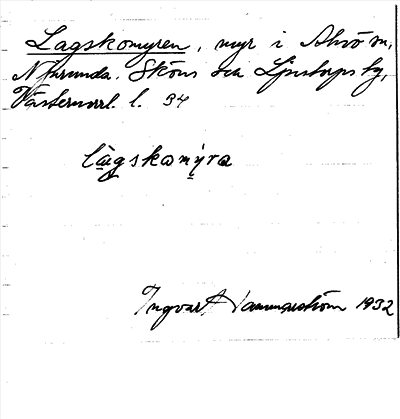 Lagskomyren, myr i Alnö sn,
Njurunda. Sköns och Ljustorps tg,
Västernorrl. l. 34
lagskomýra
Ingvar Hammarström 1932